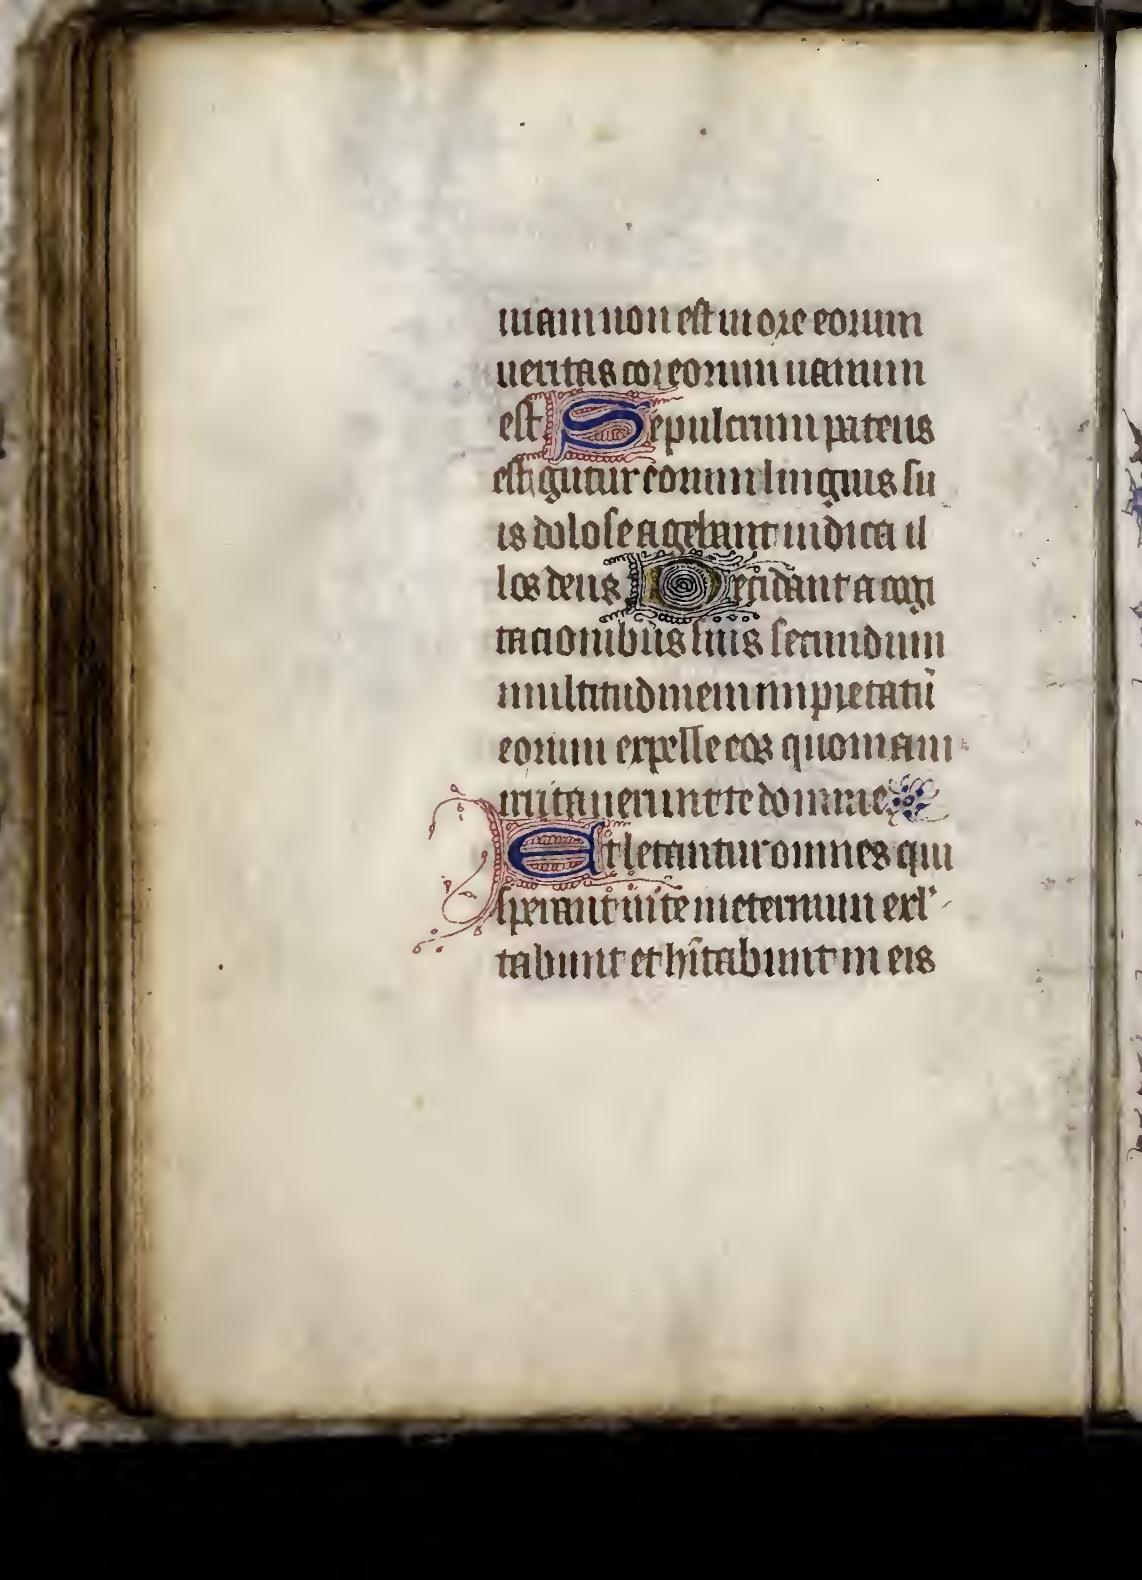 niam non est in ore eorum
veritas cor eorum uanum
est Sepulcrum patens
est gutur eorum linguis su
is dolose agebant iudica il
los deus Decidant a cogi
tacionibus suis secundum
multitudinem impietatū
eorum expelle eos quoniam
irritauerunt te domine
Et letantur omnes qui
sperant in te in eternum exl'
tabunt et hītabunt in eis